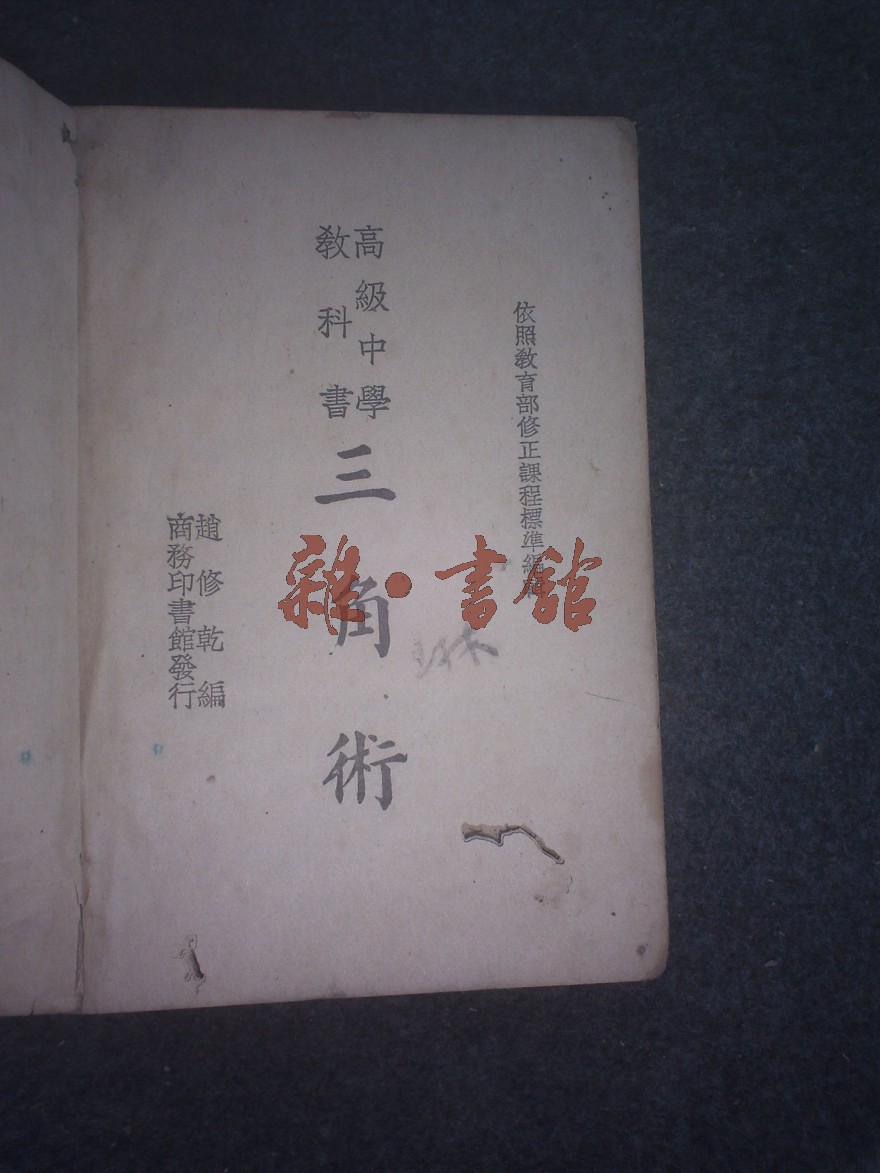 依照教育部修正課程標準編輯
高級中學
教科書
三角術
趙修乾編
商務印書館發行
雜·書館